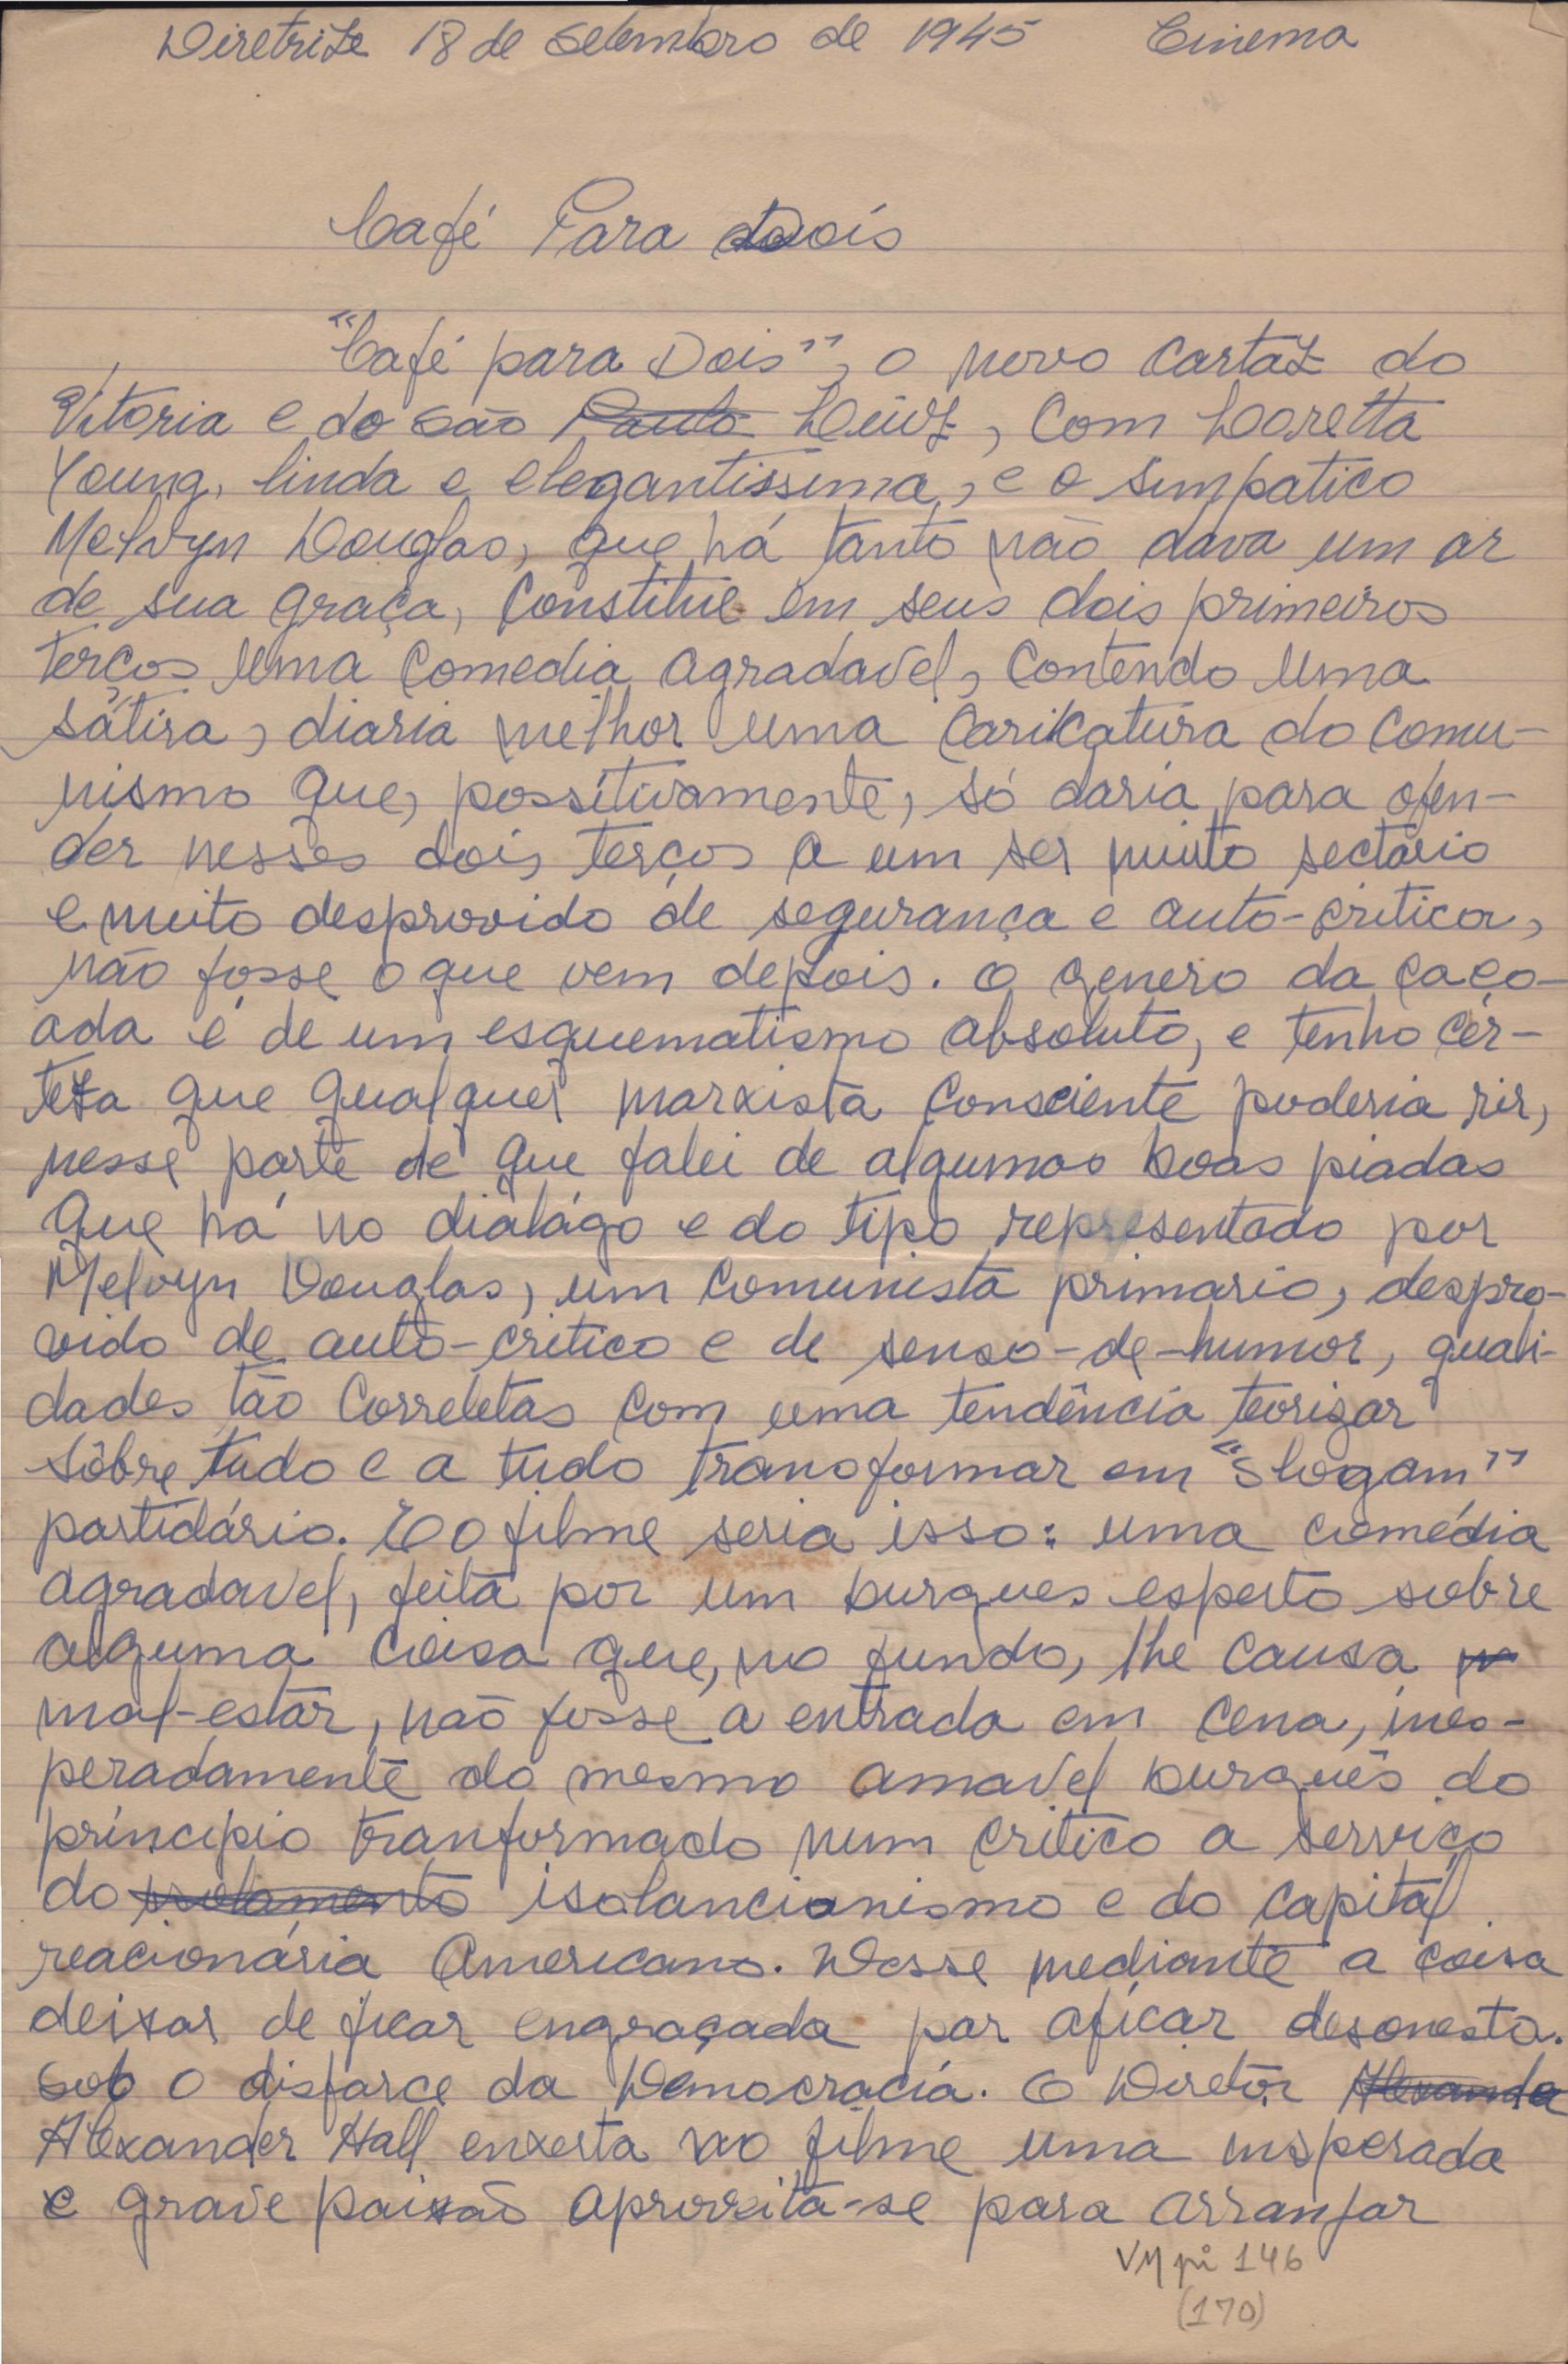 Diretrize 18 de Setembro de 1945 Cinema
Café Para Dois
"Café para Dois", o novo cartaz do
Vitoria e do São Paulo Luiz, com Loretta
Young, linda e elegantissima, e o simpatico
Melvyn Douglas, que há tanto não dava um ar
de sua graça, constitue em seus dois primeiros
terços uma comedia agradavel, contendo uma
sátira, diaria melhor uma caricatura do comu-
nismo que, possitivamente, só daria para ofen-
der nesses dois terços a um ser muito sectário
e muito desprovido de segurança e auto-critica,
não fosse o que vem depois. O genero da caço-
ada é de um esquematismo absoluto, e tenho cer-
teza que qualquer marxista consciente poderia rir,
nesse parte de que falei de algumas boas piadas
que há no dialágo e do tipo representado por
Melvyn Douglas, um comunista primario, despro-
vido de auto-critico e de senso-de-humor, quali-
dades tão correletas com uma tendência teorizar
sôbre tudo e a tudo transformar em "slogam"
partidário. E o filme seria isso: uma comédia
agradavel, feita por um burgues esperto sobre
alguma coisa que, no fundo, lhe causa
mal-estar, não fosse a entrada em cena, ines-
peradamente do mesmo amavel burguês do
príncipio tranformado num critico a serviço
do isolamento isolancionismo e do capital
reacionária Americano. Desse mediante a coisa
deixar de ficar engraçada par aficar desonesta.
Sob o disfarce da Democracia. O Diretor Alexande
Alexander Hall enxerta no filme uma insperada
e grave paixão aproveita-se para arranjar
VM pi 146
(170)